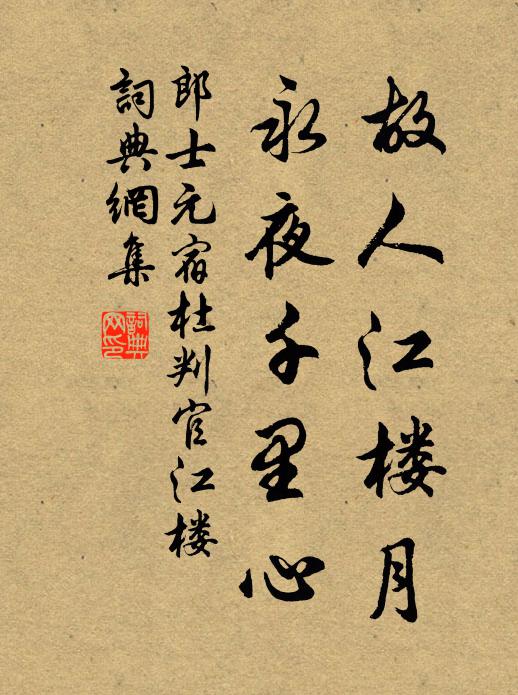 故人江楼月
永夜千里心
郎士元宿杜判官江楼
詞典網集
詞典網印